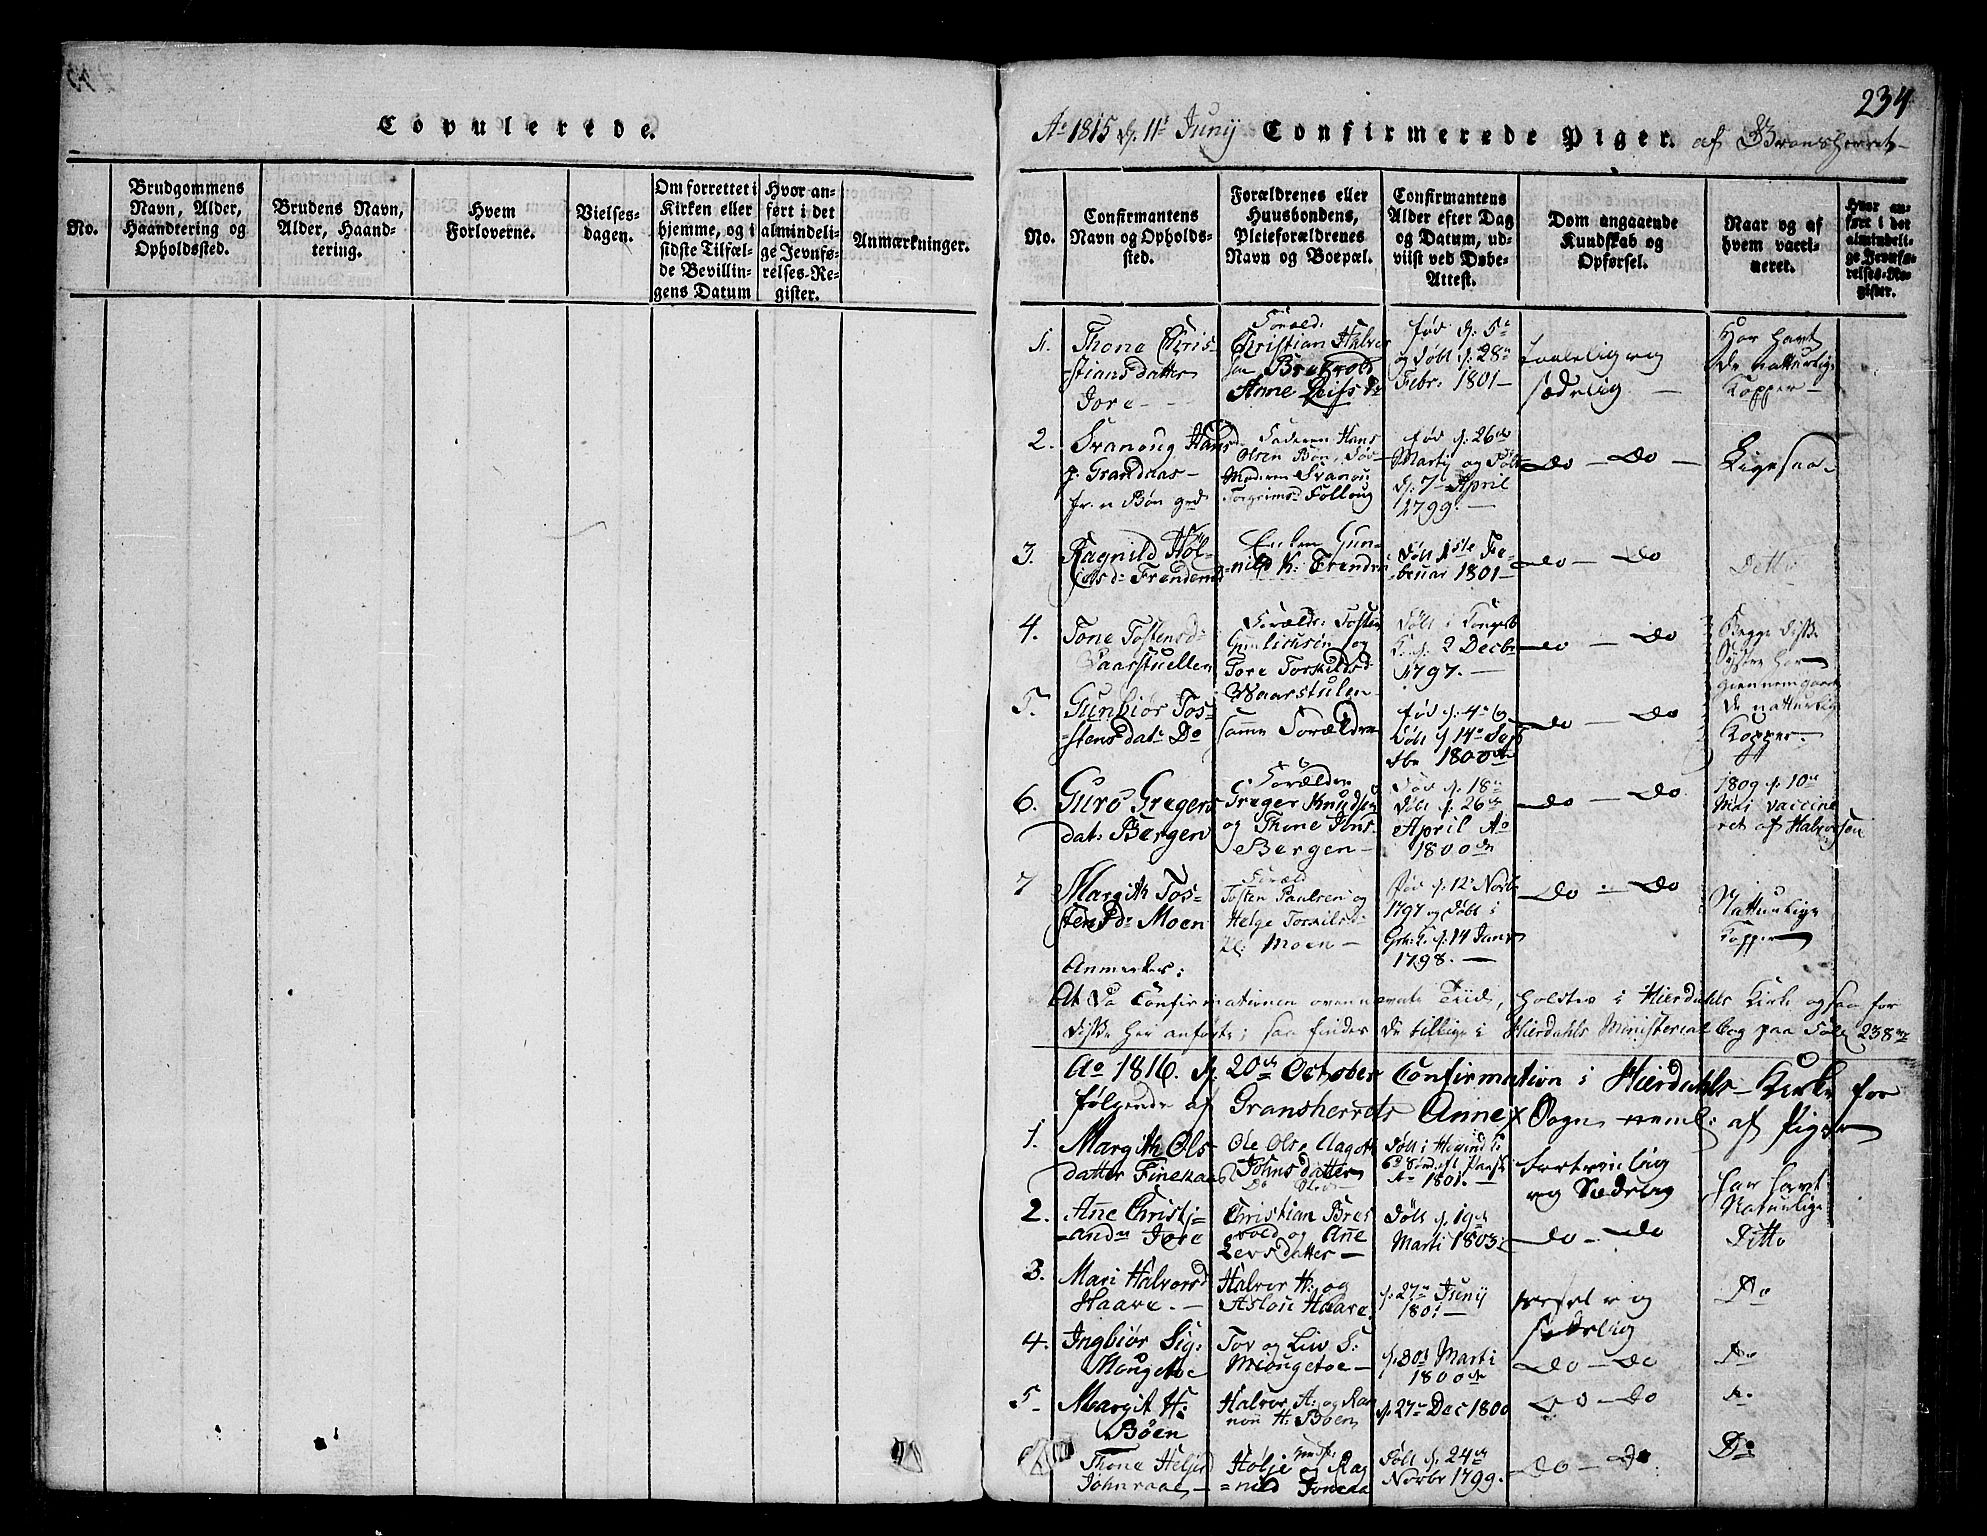 Copulerede.
No.
Brudgommens
Navn, Alder,
Haandtering og
Opholdssted.
Brudens Navn,
Alder, Haand-
tering.
Hvem
Forloverne.
Vielses-
dagen.
Om forrettet i
Kirken eller
hjemme, og i
sidste Tilfæl-
de Bevillin-
gens Datum
Hvor an-
ført i det
almindeli-
ge Jevnfø-
relses-Re-
gister.
Anmærkninger.
234
Ao 1815 d. 11te Junij Confirmerede Piger. af Gransherret
No.
Confirmantens
Navn og Opholds-
sted.
Forældrenes eller
Huusbondens,
Pleieforældrenes
Navn og Boepæl.
Confirmantens
Alder efter Dag
og Datum, ud-
viist ved Døbe-
Attest.
Dom angaaende
Kundskab og
Opførsel.
Naar og af
hvem vacci-
neret.
Hvor an-
ført i det
almindeli-
ge Jevnfø-
relses-Re-
gister.
1. Thone Chris-
stians datter
Jore
Foræld:
Christian Halvor
sen Brekvold
Anne Leifs Dr
fød d. 5te
og døbt d. 28de
Febr. 1801
sædelig
Har havt
de naturlige
Kopper
2. Svanoug Hans
fr. Bøn
Faderen Hans
Olsen Bøn, død
Moderen Svanou
Torgrimsd Folloug
fød d. 26de
Marti og døbt
d. 7 April
1799.
Do Do
Ligesaa.
3. Ragnild Høl-
jesd: Frendemo
Enken Gun-
nild K: Frendem
Døbt 1ste Fe-
bruar 1801
Do Do
Ditto
4. Tone Tostensd:
Vaarstuellen
Foræld: Tosten
Gunlichsen og
Tore Torkildsd
Waarstulen
Døbt i Kongsb
K. d. 2 Decbr
1797.
Do Do
Begge disse
Søstre har
giennemgaaet
de naturlig
Kopper.
5. Gunbiør Tos-
stensdatr Do
samme Forældre
fød d. 4de og
døbt d. 14de Sep
tbr 1800
Do Do
6. Guro Gregers
dat: Bergen
Forældre
Greger Knudsen
og Thone Jons
Bergen
Død d. 18de
døbt d. 26de
April Ao
1800
Do Do
1809 d. 10de
Mai vaccine
ret af Halvorsen
7 Margith Tos-
stens Dr Moen
Foræld
Tosten Paulsen og
Helge Torkilsd
Moen
fød d. 12te Novb
1797 og døbt i
Grh: K. d. 14 Janr
1798.
Do Do
Naturlige
Kopper
Anmerkes:
At da Confirmationen ovennævnte Tiid, holdtes i Hierdahls Kirke ogsaa for
disse her anførte; saa findes de tillige i Hierdahls Ministerial bog paa Fol: 238
Ao 1816. d. 20de October Confirmation i Hierdahls Kirke for
følgende af Gransherrets Annex Sogn neml: af Piger
1. Margith Ols
datter Finekaas
Ole Olse Aagoth
Johns datter
Døbt i Hovind K
6te Sønd. eft. Paaske
Ao 1801.
Fortrinlig
og Sædelig
har havt
Naturlige
2. Ane Christj-
andr Jore
Christian Brek
vold og Ane
Levsdatter
Døbt d. 19de
Marti 1803
Do Do
Ditto
3. Mari Halvorsd
Haave.
Halvor H: og
Aslou Haave
d. 27de Junij
1801
sædelig
Do
4. Ingbiør Sig:
Mougetoe
Tov og Liv S:
Miougetoe
d. 30d Marti
1800
Do Do
Do
5 Margit H:
Bøen
Halvor A: og Rag
non H: Bøen
d. 27de Dec 1800
Do Do
Do
Thone Heljesd
Johnsaas
Hølje og Rag
nild Jonsaa
Døbt d. 24de
Novbr 1799.
Do Do.
Do